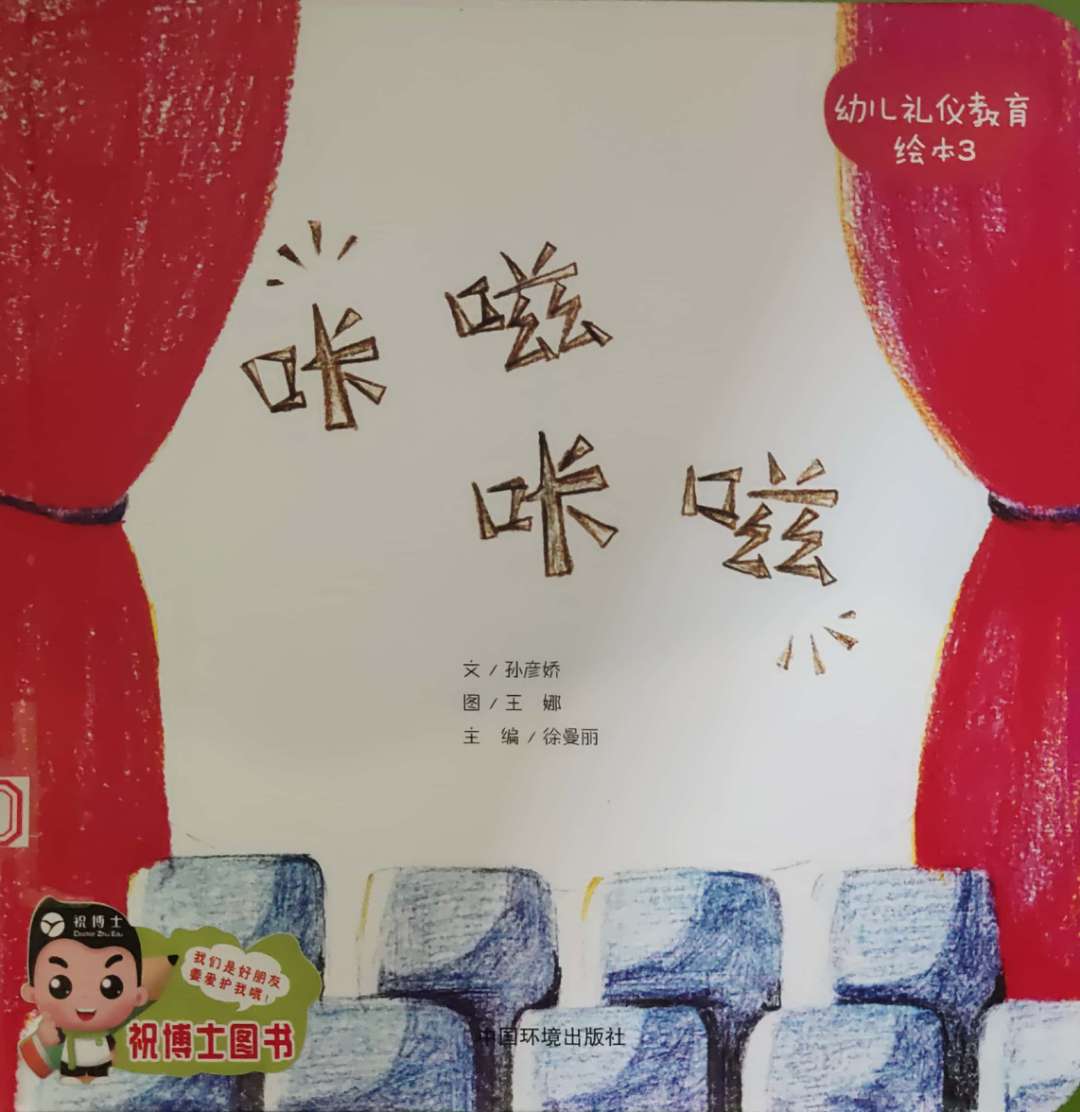 幼儿礼仪教育
绘本3
咔嗞
咔嗞
文/孙彦娇
图/王 娜
主 编/徐曼丽
祝博士
Doctor Zhu Edu
我们是好朋友
要爱护我哦!
祝博士图书
中国环境出版社